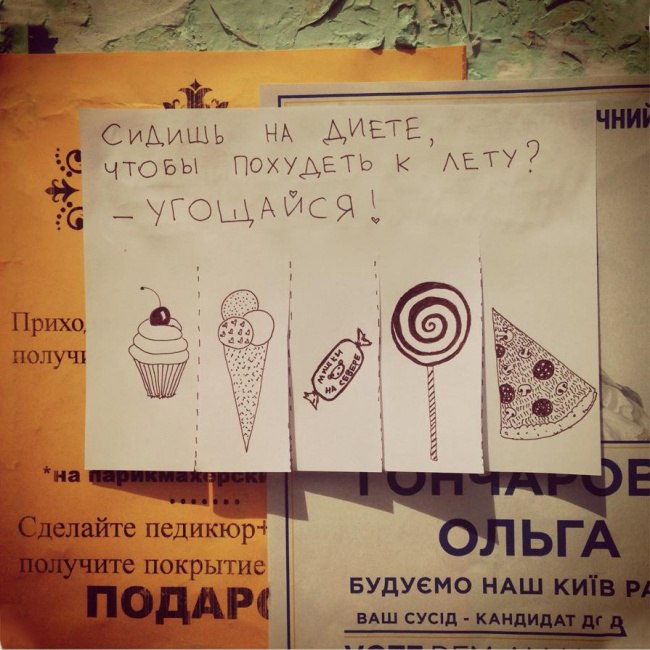 СИДИШЬ НА ДИЕТЕ,
ЧТОБЫ ПОХУДЕТЬ К ЛЕТУ?
– УГОЩАЙСЯ!
МИШКИ
НА СЕВЕРЕ
ЧНИЙ
Прихо
получи
*на парикмахерски
Сделайте педикюр+
получите покрытие
ПОДАР
ГОНЧАРОВ
ОЛЬГА
БУДУЄМО НАШ КИЇВ РА
ВАШ СУСІД - КАНДИДАТ